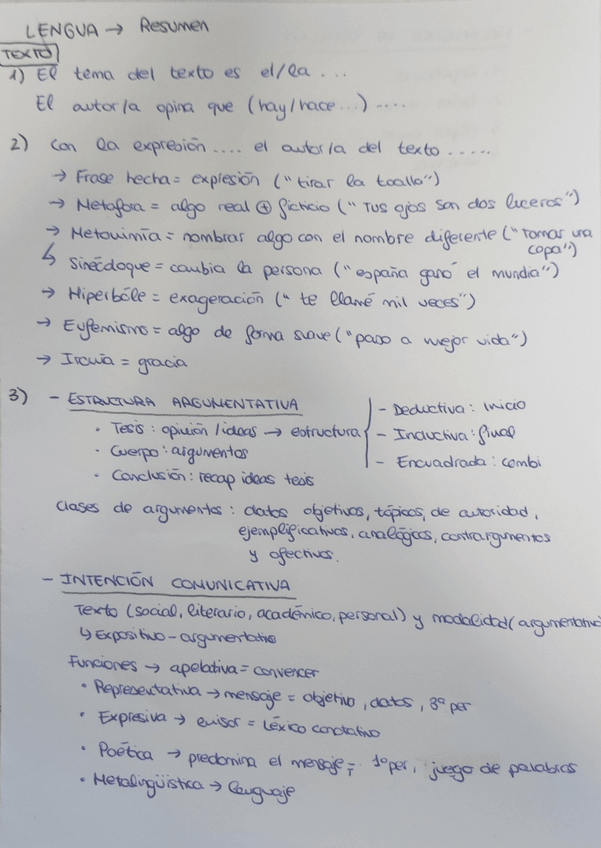 LENGUA → Resumen
TEXTO
1) El tema del texto es el/la ...
El autor/a opina que (hay/hace...) ....
2) Con la expresión .... el autor/a del texto .....
→ Frase hecha = expresión ("tirar la toalla")
→ Metáfora = algo real ⊕ ficticio ("Tus ojos son dos luceros")
→ Metonimia = nombrar algo con el nombre diferente ("Tomar una copa")
↳ Sinécdoque = cambia la persona ("españa ganó el mundia")
→ Hiperbóle = exageración ("te llamé mil veces")
→ Eufemismo = algo de forma suave ("paso a mejor vida")
→ Ironía = gracia
3) - ESTRUCTURA ARGUMENTATIVA
• Tesis: opinión/ideas → estructura
- Deductiva: inicio
- Inductiva: final
- Encuadrada: combi
• Cuerpo: argumentos
• Conclusión: recap ideas tesis
Clases de argumentos: datos objetivos, tópicos, de autoridad,
ejemplificativos, analógicos, contrargumentos
y afectivos.
- INTENCIÓN COMUNICATIVA
Texto (social, literario, académico, personal) y modalidad (argumentativo
↳ Expositivo - argumentativo
Funciones → apelativa = convencer
• Representativa → mensaje = objetivo, datos, 3ª per
• Expresiva → emisor = Léxico conotativo
• Poética → predomina el mensaje = 1ª per, juego de palabras
• Metalingüística → lenguaje